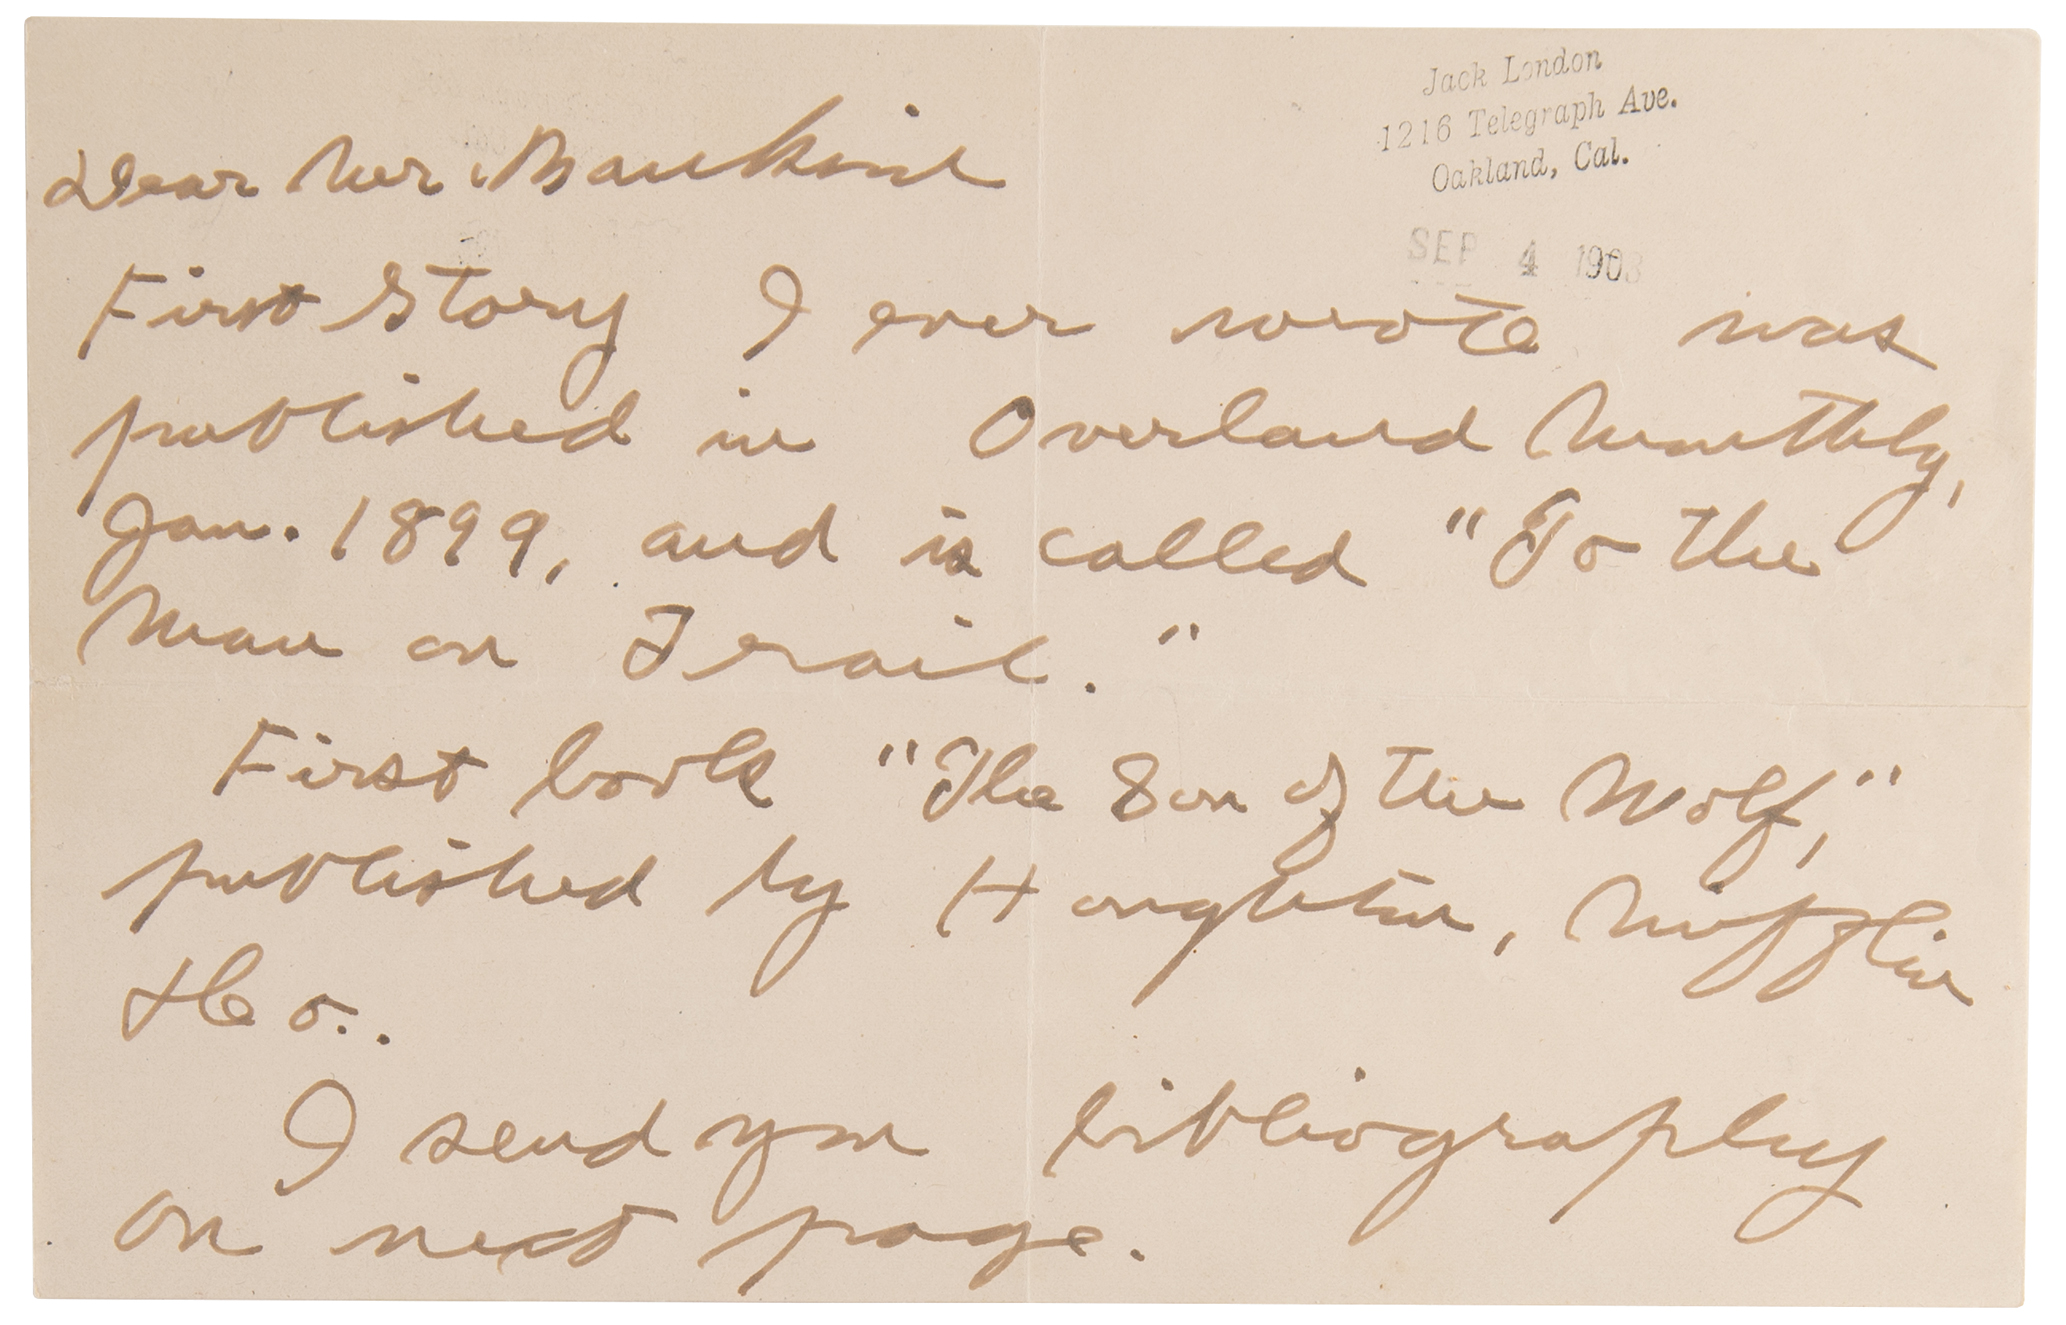 Jack London
1216 Telegraph Ave.
Oakland, Cal.
SEP 4 1903
Dear Mr.
First Story I ever wrote was
published in Overland Monthly,
Jan. 1899, and is called "To the
Man on Trail."
First book "The Son of the Wolf,"
published by Houghton, Mifflin
& Co..
I send you bibliography
on next page.